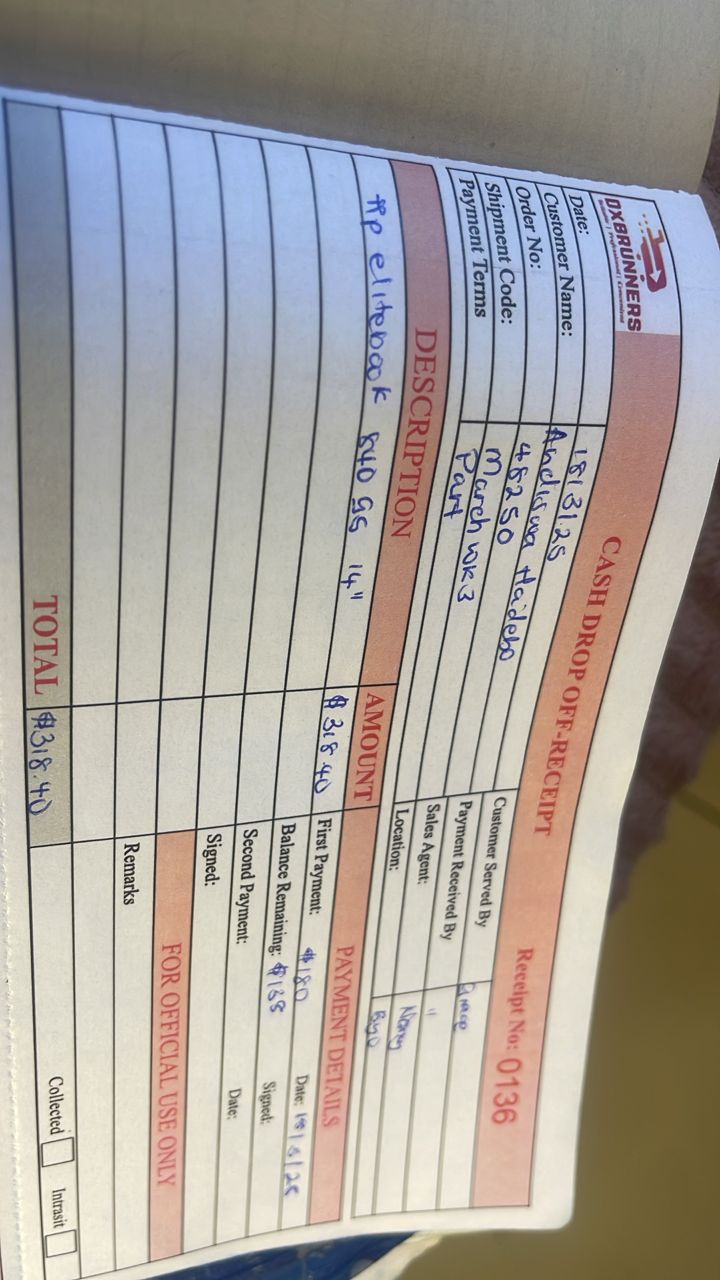 DXBRUNNERS
CASH DROP OFF-RECEIPT
Receipt No: 0136
Date: 18/3/25
Customer Name: Andiswa Hadebo
Order No: 48250
Shipment Code: March wk3
Payment Terms Part
Customer Served By Grace
Payment Received By "
Sales Agent: Nancy
Location: Byo
DESCRIPTION AMOUNT
Hp elitebook 840 G5 14" $318.40
PAYMENT DETAILS
First Payment: $180 Date:
Balance Remaining: Signed:
Second Payment: Date:
Signed:
FOR OFFICIAL USE ONLY
Remarks
TOTAL $318.40
Collected Intrasit